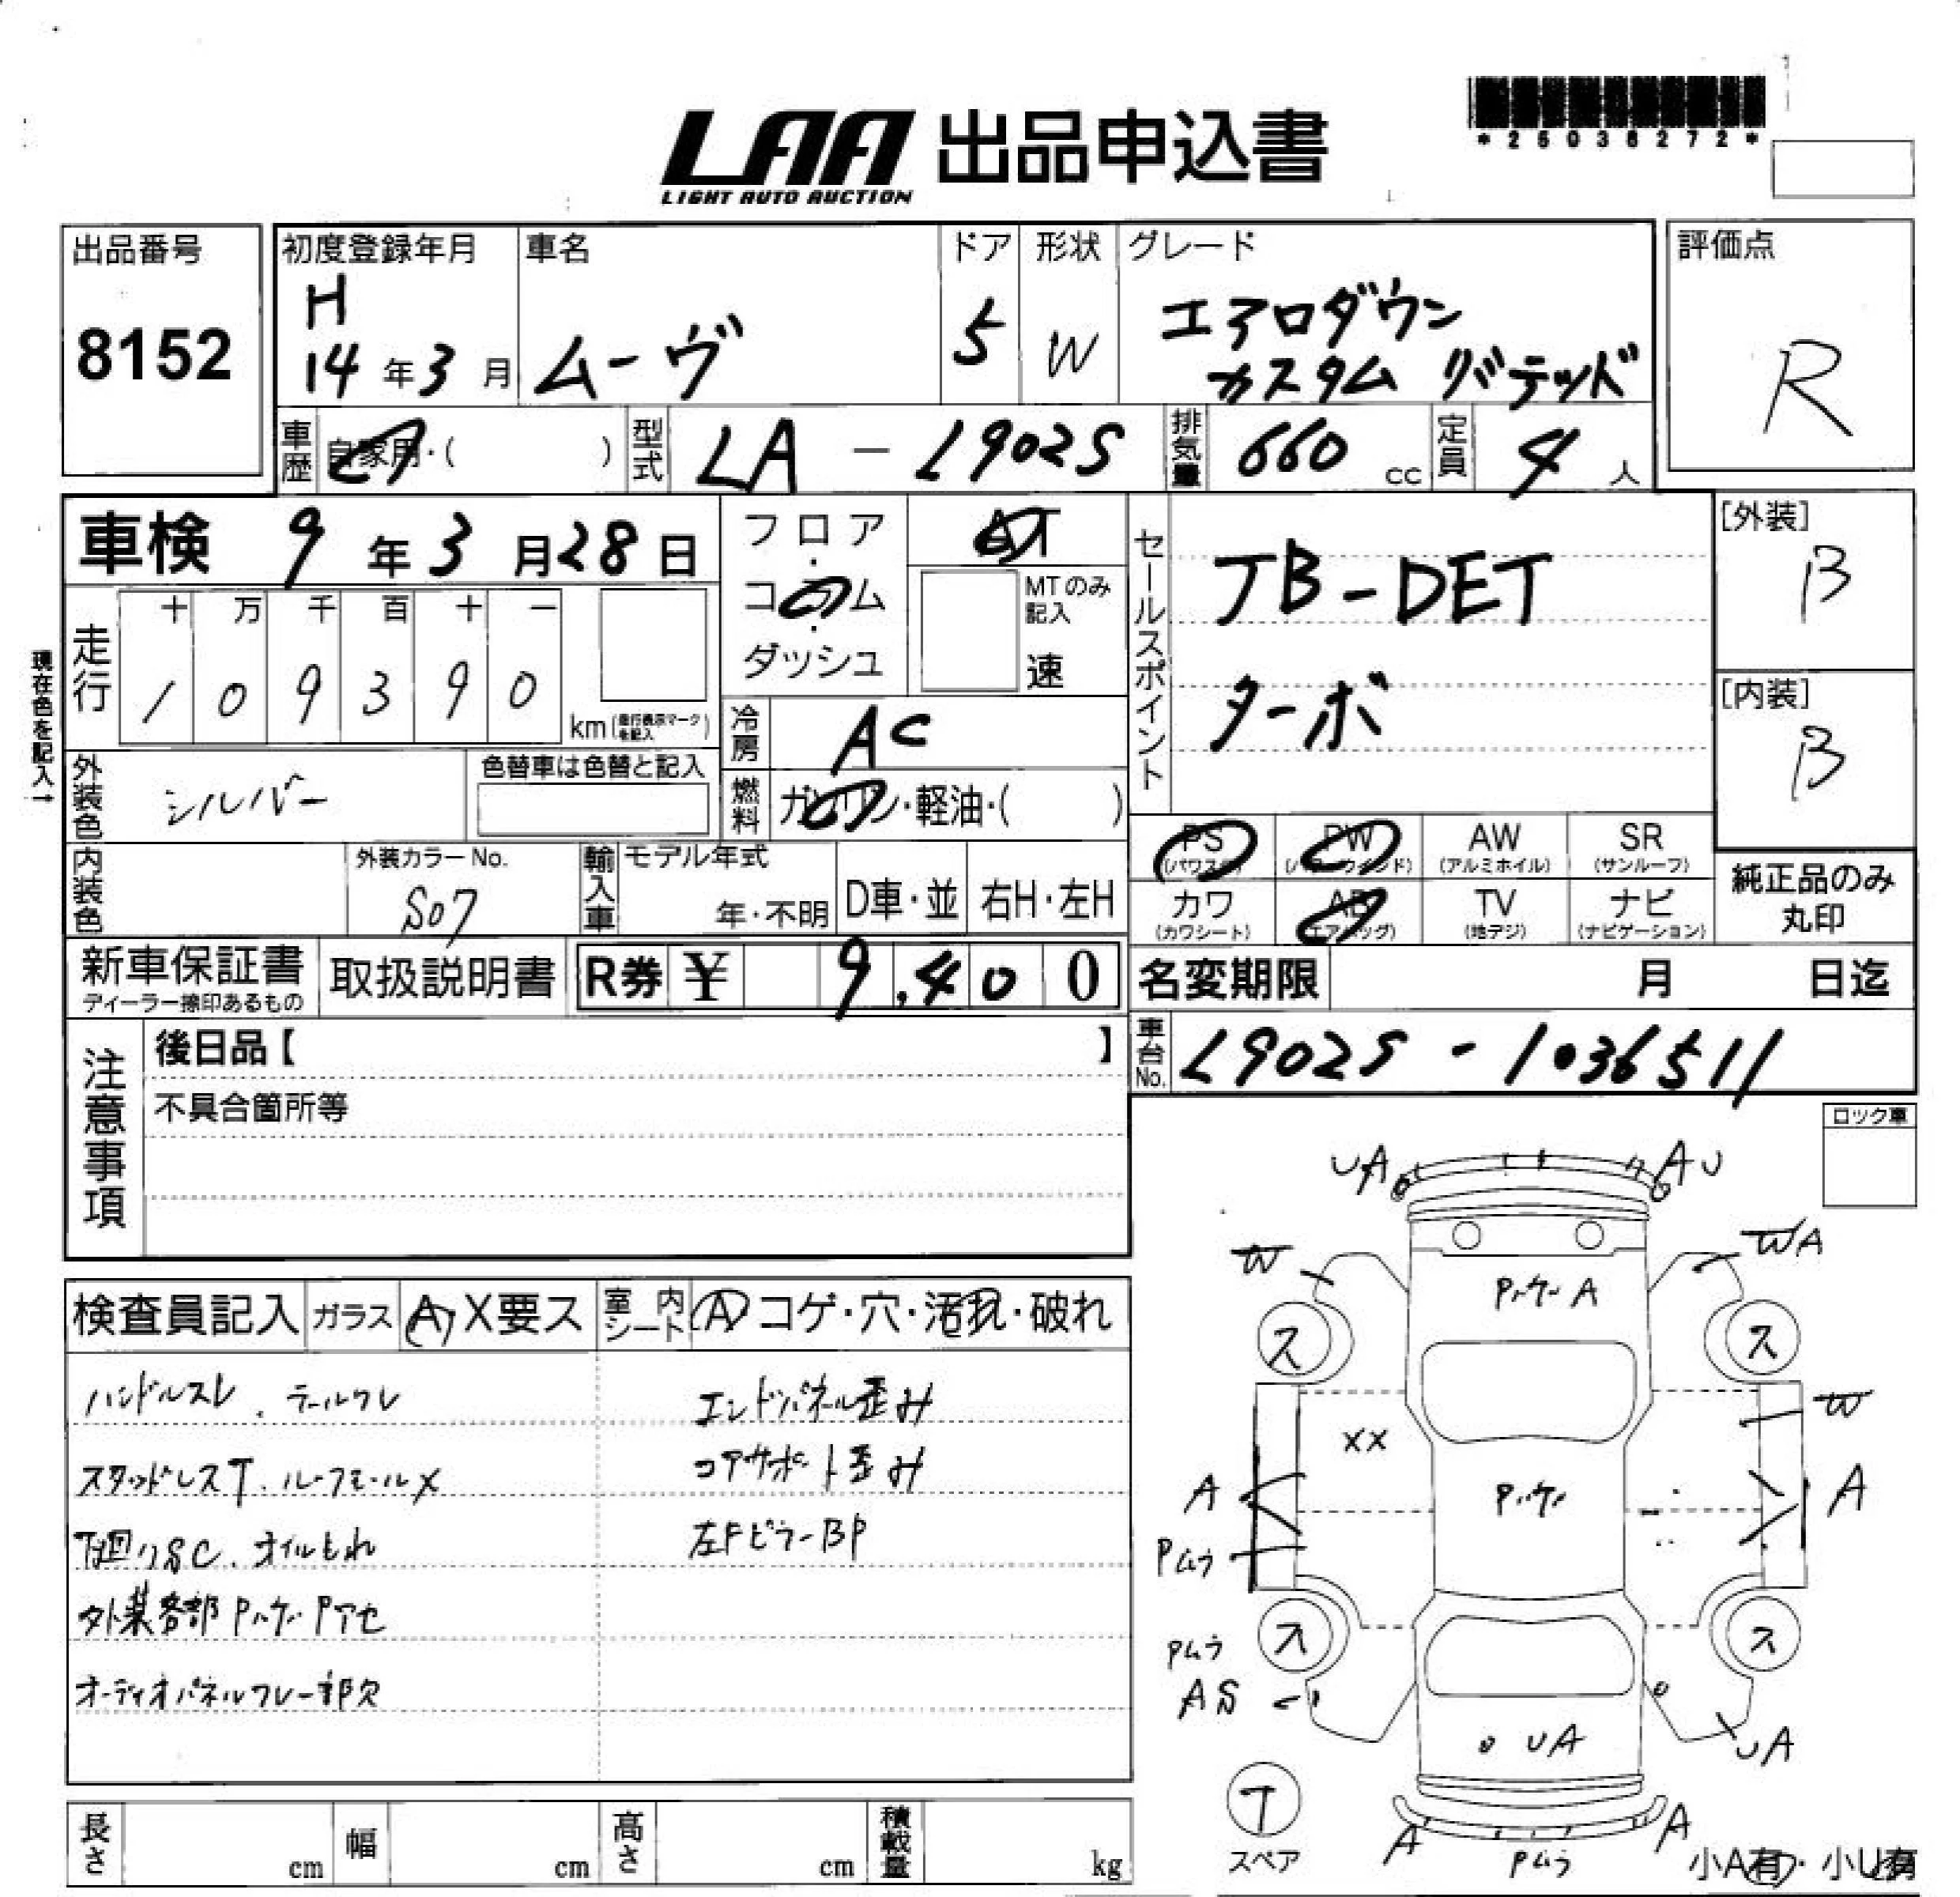 LAA 出品申込書
LIGHT AUTO AUCTION
*25036272*
出品番号
8152
初度登録年月
H
14年3月
車名
ムーヴ
ドア
5
形状
W
グレード
エアロダウン
カスタム リミテッド
評価点
R
車歴
自家用・( )
型式
LA - L902S
排気量
660 cc
定員
4 人
車検 9年3月28日
フロア・コラム・ダッシュ
AT
MTのみ記入
速
セールスポイント
JB-DET
ターボ
[外装]
B
[内装]
B
現在色を記入→
走行
十 万 千 百 十 一
1 0 9 3 9 0
km(走行表示マークを記入)
冷房
AC
外装色
シルバー
色替車は色替と記入
燃料
ガソリン・軽油・( )
PS (パワステ)
PW (パワーウインド)
AW (アルミホイル)
SR (サンルーフ)
カワ (カワシート)
AB (エアバッグ)
TV (地デジ)
ナビ (ナビゲーション)
純正品のみ丸印
内装色
外装カラーNo.
S07
輸入車
モデル年式
年・不明
D車・並
右H・左H
新車保証書
ディーラー捺印あるもの
取扱説明書
R券 ¥ 9,400
名変期限 月 日迄
車台No.
L902S - 1036511
注意事項
後日品【 】
不具合箇所等
ロック車
検査員記入
ガラス A X要ス
室内シート A コゲ・穴・汚れ・破れ
ハンドルスレ、テールワレ
エンドパネル歪み
スタッドレスT、ルーフモールX
コアサポート歪み
下廻りSC、オイルもれ
左FピラーBP
外装各部Pハゲ Pアセ
オーディオパネルワレ一部欠
UA
AU
W
WA
Pハゲ A
ス
ス
XX
W
A
Pハゲ
A
Pムラ
ス
ス
Pムラ
AS
UA
UA
T
スペア
A
A
Pムラ
小A有・小U有
長さ cm
幅 cm
高さ cm
積載量 kg